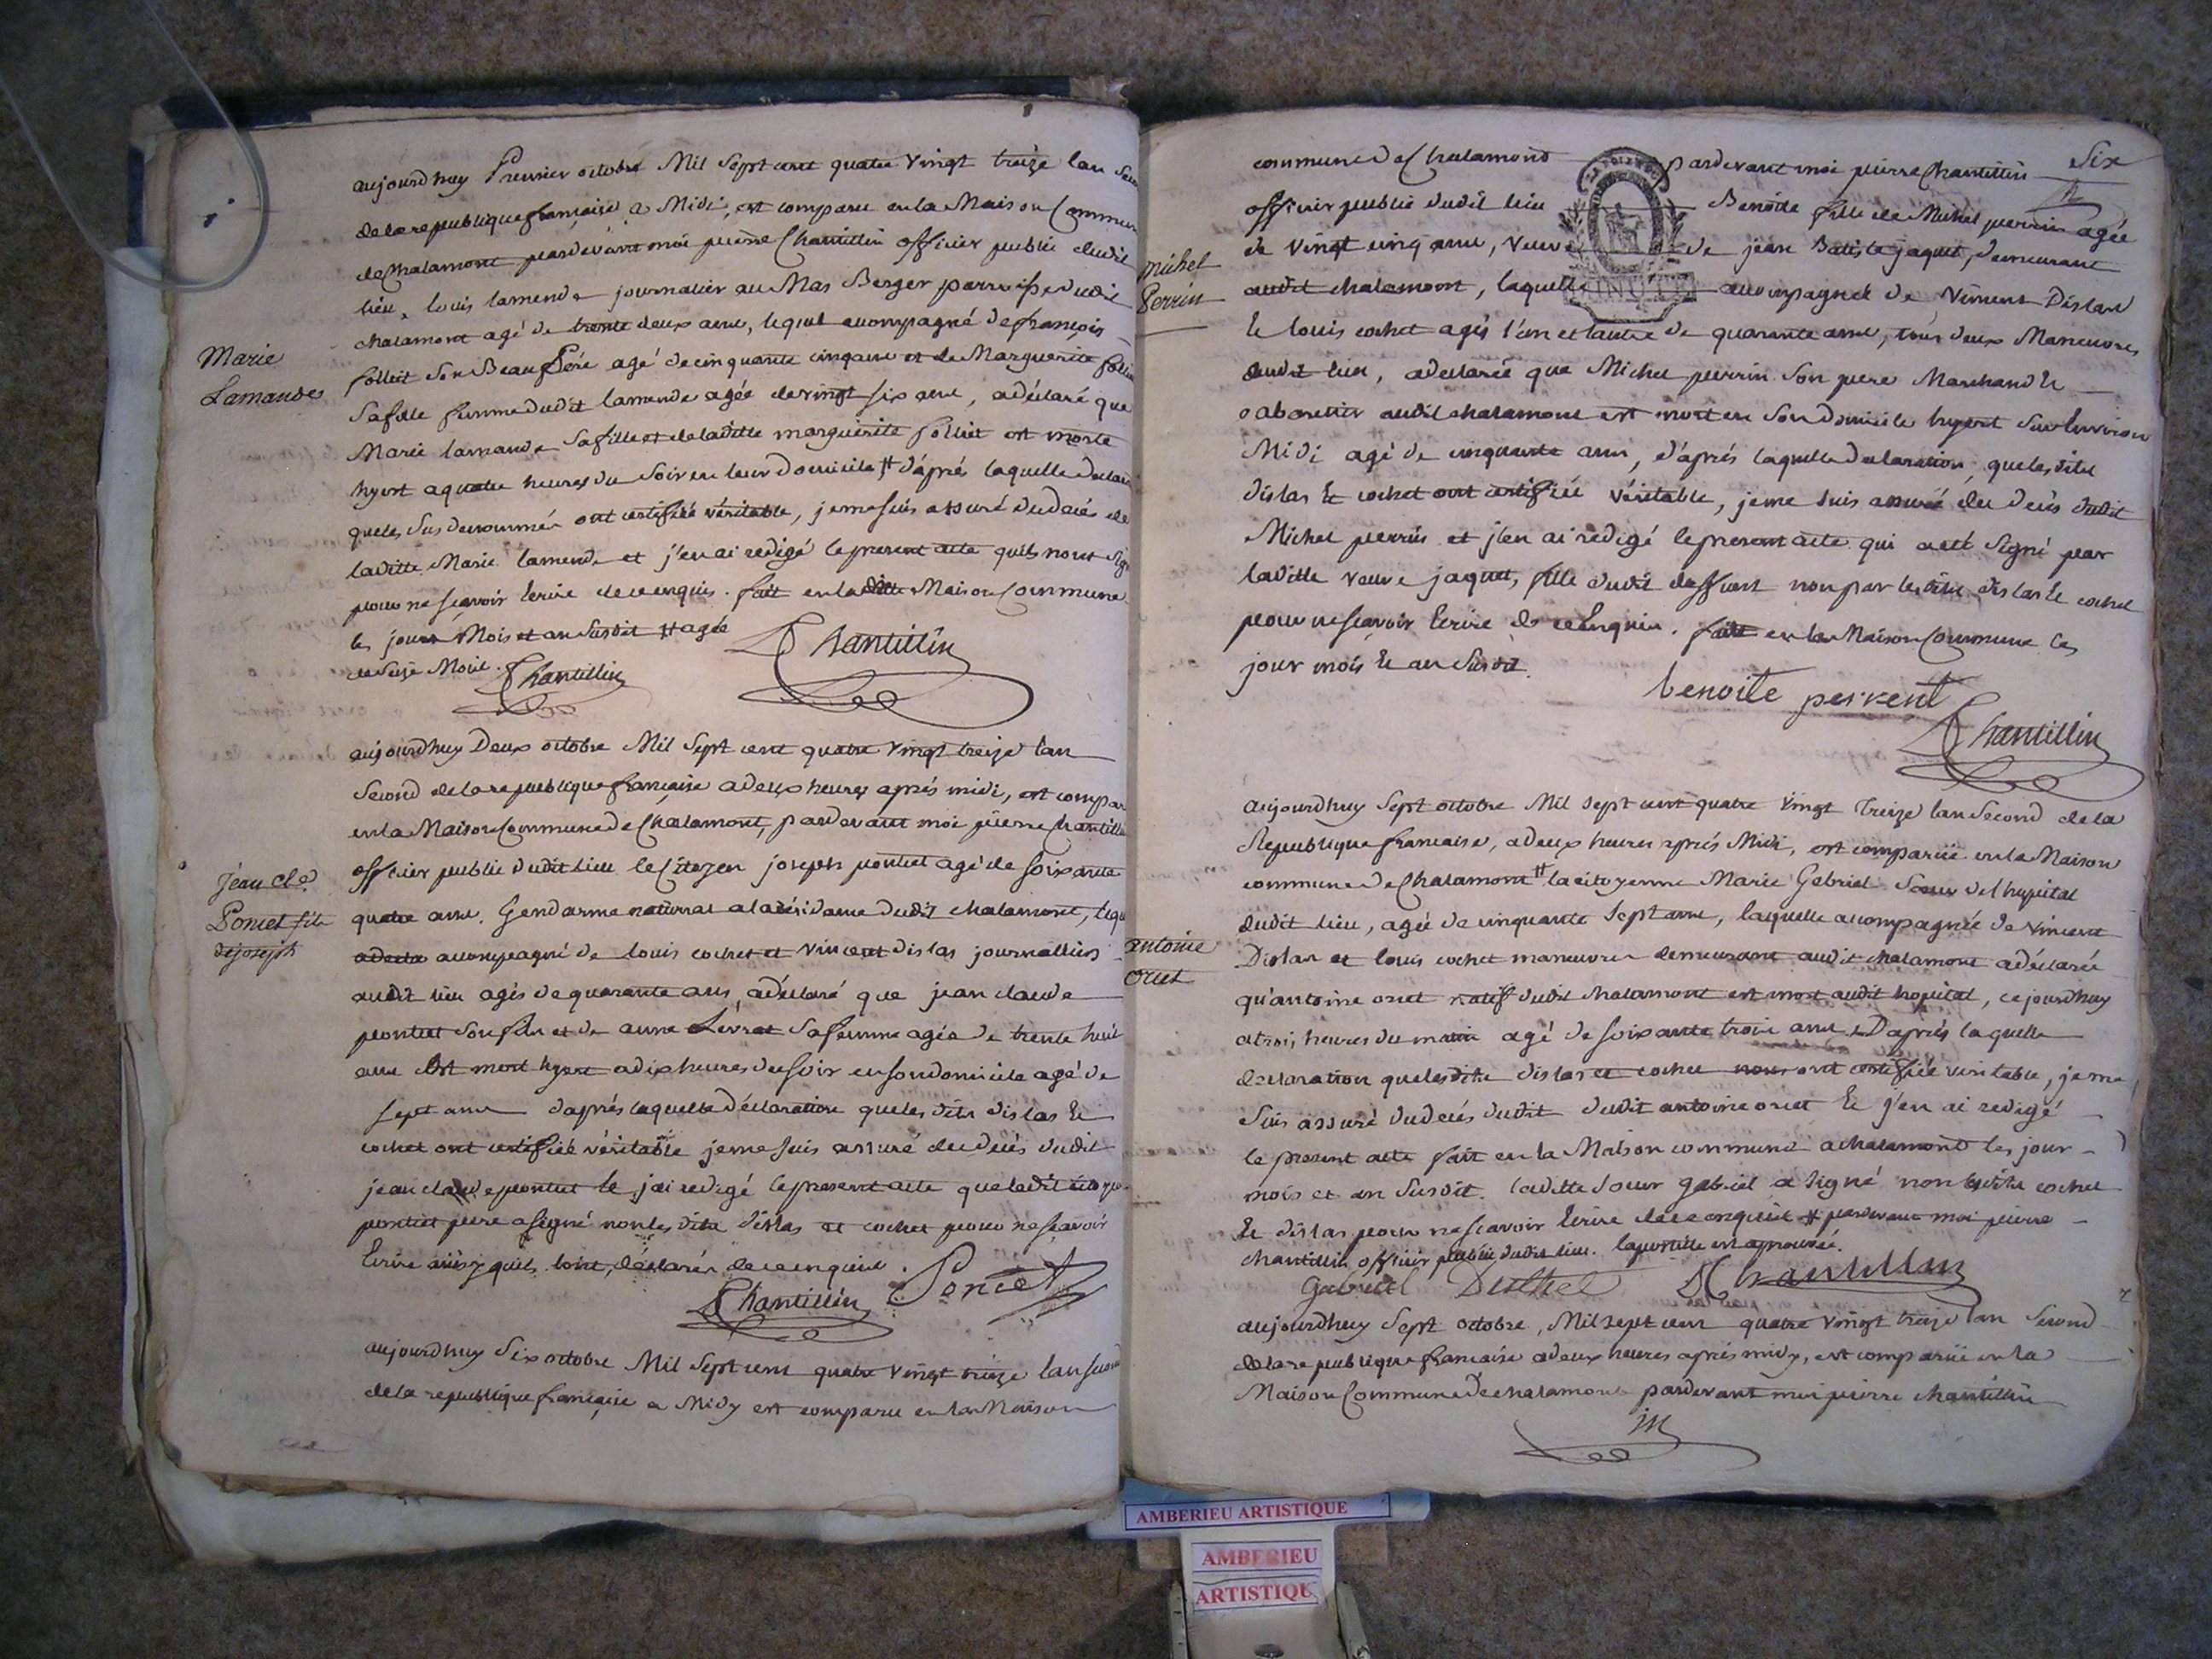 aujourdhuy Premier octobre Mil Sept cent quatre Vingt treize lan
de la republique française a Midi, est comparu en la Maison Commune
de Chalamont pardevant moi pierre Chantillin officier public dudit
lieu, louis lamende journalier au Mas Berger parroisse dudit
chalamont agé de trente deux ans, lequel accompagné de françois
folliet Son Beau Pére agé de cinquante cinq ans et de Marguerite folliet
Marie
Lamandes
Sa fille femme dudit lamende agée de vingt six ans, a déclaré que
Marie lamande Sa fille et de laditte marguerite folliet est morte
hyert a quatre heures du Soir en leur domicile # d'aprés laquelle
que les Sus denommés ont certifiée véritable, je me suis assuré du decés de
laditte Marie lamende et j'en ai redigé le present acte quils nont
pour ne sçavoir Ecrire de ce enquis. fait en la ditte Maison Commune
les jours Mois et an Susdit # agée
de Seize Mois. Chantillin
Chantillin
aujourdhuy Deux octobre Mil Sept cent quatre vingt treize lan
Second de la republique française a deux heures aprés midi, est
en la Maison Commune de Chalamont, pardevant moi pierre Chantillin
officier public dudit lieu le Citoyen joseph pontet agé de soixante
Jean Cl.d
Poncet fils
de joseph
quatre ans. Gendarme national a la résidance dudit chalamont,
accompagné de louis cochet et vincent dislas journalliers
audit lieu agés de quarante ans a déclaré que jean claude
pontet Son fils et de anne Sa femme agée de trente huit
ans Est mort hyert a dix heures du soir en son domicile agé de
Sept ans d'aprés laquelle déclaration que les dits dislas Et
cochet ont certifiée véritable je me suis assuré du decés dudit
jean claude pontet Et j'ai redigé le present acte que ledit
pontet pere a signé non les dits dislas et cochet pour ne sçavoir
Ecrire ainsy quils l'ont déclarés de ce enquis.
Chantillin Poncet
aujourdhuy Six octobre Mil Sept cent quatre Vingt treize lan second
de la republique française a Midy est comparu en la Maison
Six
commune de Chalamond pardevant moi pierre Chantillin
officier public dudit lieu Benoite fille de Michel perrin agée
de Vingt cinq ans, Veuve de jean Batiste jaquet, demeurant
michel
Perrin
audit chalamont, laquelle accompagnée de Vincent Dislas
Et louis cochet agés l'un et lautre de quarante ans, tous deux Maneuvres
dudit lieu, a declarée que Michel perrin Son pere Marchand Et
cabarettier audit chalamont est mort en Son domicile hyert Sur Lenviron
Midi agé de cinquante ans, d'aprés laquelle declaration que les dits
dislas Et cochet ont certifiée véritable, je me suis assuré du decés dudit
Michel perrin et j'en ai redigé le present acte qui a eté Signé par
laditte veuve jaquet, fille dudit deffunt non par les dits dislas Et cochet
pour ne sçavoir Ecrire de ce Enquis. fait en la Maison Commune les
jour mois Et an Susdit.
benoite perrent
Chantillin
aujourdhuy Sept octobre Mil sept cent quatre vingt treize lan Second de la
Republique francaise, a deux heures aprés Midi, est comparüe en la Maison
commune de Chalamont # la citoyenne Marie Gabriel Soeur de l'hopital
dudit lieu, agée de cinquante Sept ans, laquelle accompagnée de vincent
antoine
oriet
Dislas et louis cochet maneuvres demeurant audit chalamont a déclarée
qu'antoine oriet natif dudit chalamont est mort audit hopital, cejourdhuy
a trois heures du matin agé de soixante trois ans D'aprés laquelle
declaration que les dits dislas et cochet nous ont certifiée veritable, je me
Suis assuré du decés dudit dudit antoine oriet Et j'en ai redigé
le present acte fait en la Maison commune a chalamont les jour
mois et an Susdit. laditte Soeur gabriel a Signé non lesdits cochet
Et dislas pour ne scavoir Ecrire de ce enquis # pardevant moi pierre
chantillin officier public dudit lieu. lapostille est aprouvée.
Gabriel Duthel Chantillin
aujourdhuy Sept octobre, Mil sept cent quatre vingt treize lan Second
de la republique francaise a deux heures aprés midy, est comparüe en la
Maison Commune de chalamont pardevant moi pierre chantillin
AMBERIEU ARTISTIQUE
AMBERIEU
ARTISTIQUE